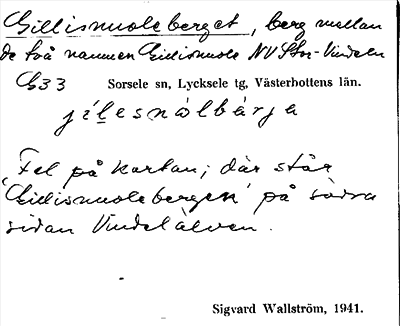 Gillisnuoleberget, berg mellan
de två namnen Gillisnuole NV Stor-Vindeln
G33 Sorsele sn, Lycksele tg, Västerbottens län.
jílesnòlbärja
Fel på kartan; där står
"Gillisnuolebergen" på södra
sidan Vindelälven.
Sigvard Wallström, 1941.